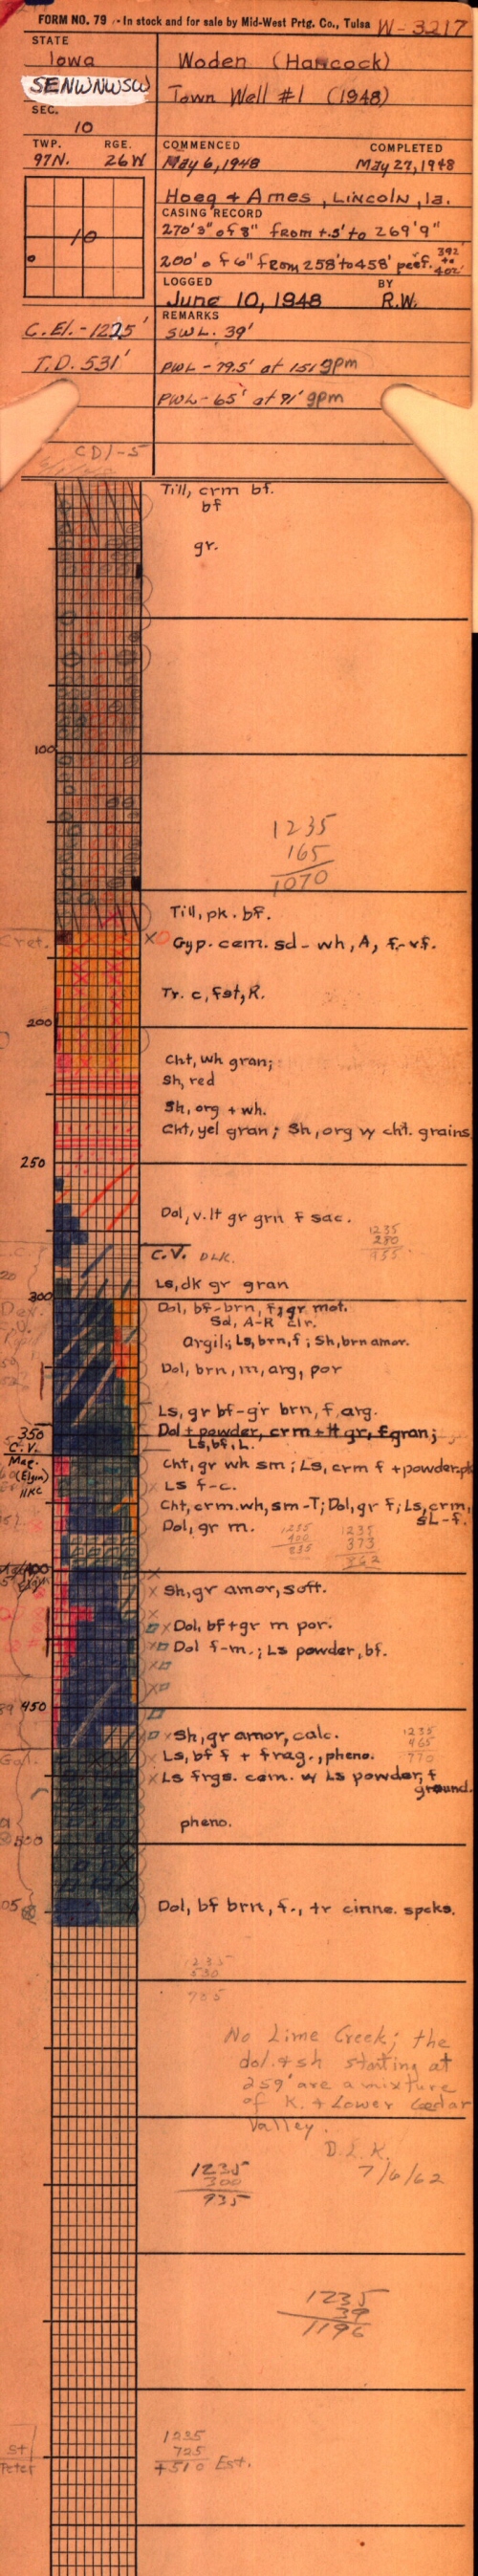 FORM NO. 79 - In stock and for sale by Mid-West Prtg. Co., Tulsa W-3217
STATE
Iowa
Woden (Hancock)
SENWNWSW
Town Well #1 (1948)
SEC.
10
TWP. RGE.
97N. 26W
COMMENCED COMPLETED
May 6, 1948 May 27, 1948
10
Hoeg & Ames, Lincoln, Ia.
CASING RECORD
270'3" of 8" from +.5' to 269'9"
200' of 6" from 258' to 458' perf. 392' to 402'
LOGGED BY
June 10, 1948 R.W.
REMARKS
C.El. - 1225'
SWL. 39'
T.D. 531'
PWL - 79.5' at 151 gpm
PWL - 65' at 91' gpm
CD1-5
Till, crm bf.
bf
gr.
100
1235
165
1070
Till, pk. bf.
Cret.
Gyp. cem. sd - wh, A, f-vf.
Tr. c, fst, R.
200
Cht, wh gran;
Sh, red
Sh, org + wh.
Cht, yel gran; Sh, org w cht. grains
250
Dol, v. lt gr grn f sac.
1235
280
955
C.V. DLK.
Ls, dk gr gran
300
Dol, bf-brn, f; gr mot.
Sd, A-R clr.
Argil; Ls, brn, f; Sh, brn amor.
Dol, brn, m, arg, por
Ls, gr bf-gr brn, f, arg.
350
Dol + powder, crm + lt gr, f gran;
Ls, bf, L.
C.V.
Maq.
(Elgin)
Cht, gr wh sm; Ls, crm f + powder
Ls f-c.
Cht, crm. wh, sm-T; Dol, gr f; Ls, crm,
sL-f.
Dol, gr m.
1235
400
835
1235
373
862
400
Sh, gr amor, soft.
Dol, bf + gr m por.
Dol f-m.; Ls powder, bf.
450
Sh, gr amor, calc.
1235
465
770
Gal.
Ls, bf f + frag., pheno.
Ls frgs. cem. w Ls powder, f
ground.
pheno.
500
Dol, bf brn, f., tr cinne. spcks.
1235
530
705
No Lime Creek; the
dol. & sh starting at
259' are a mixture
of K. + Lower Cedar
Valley.
D.L.K.
7/6/62
1235
300
935
1235
39
1196
St
Peter
1235
725
+510 Est.